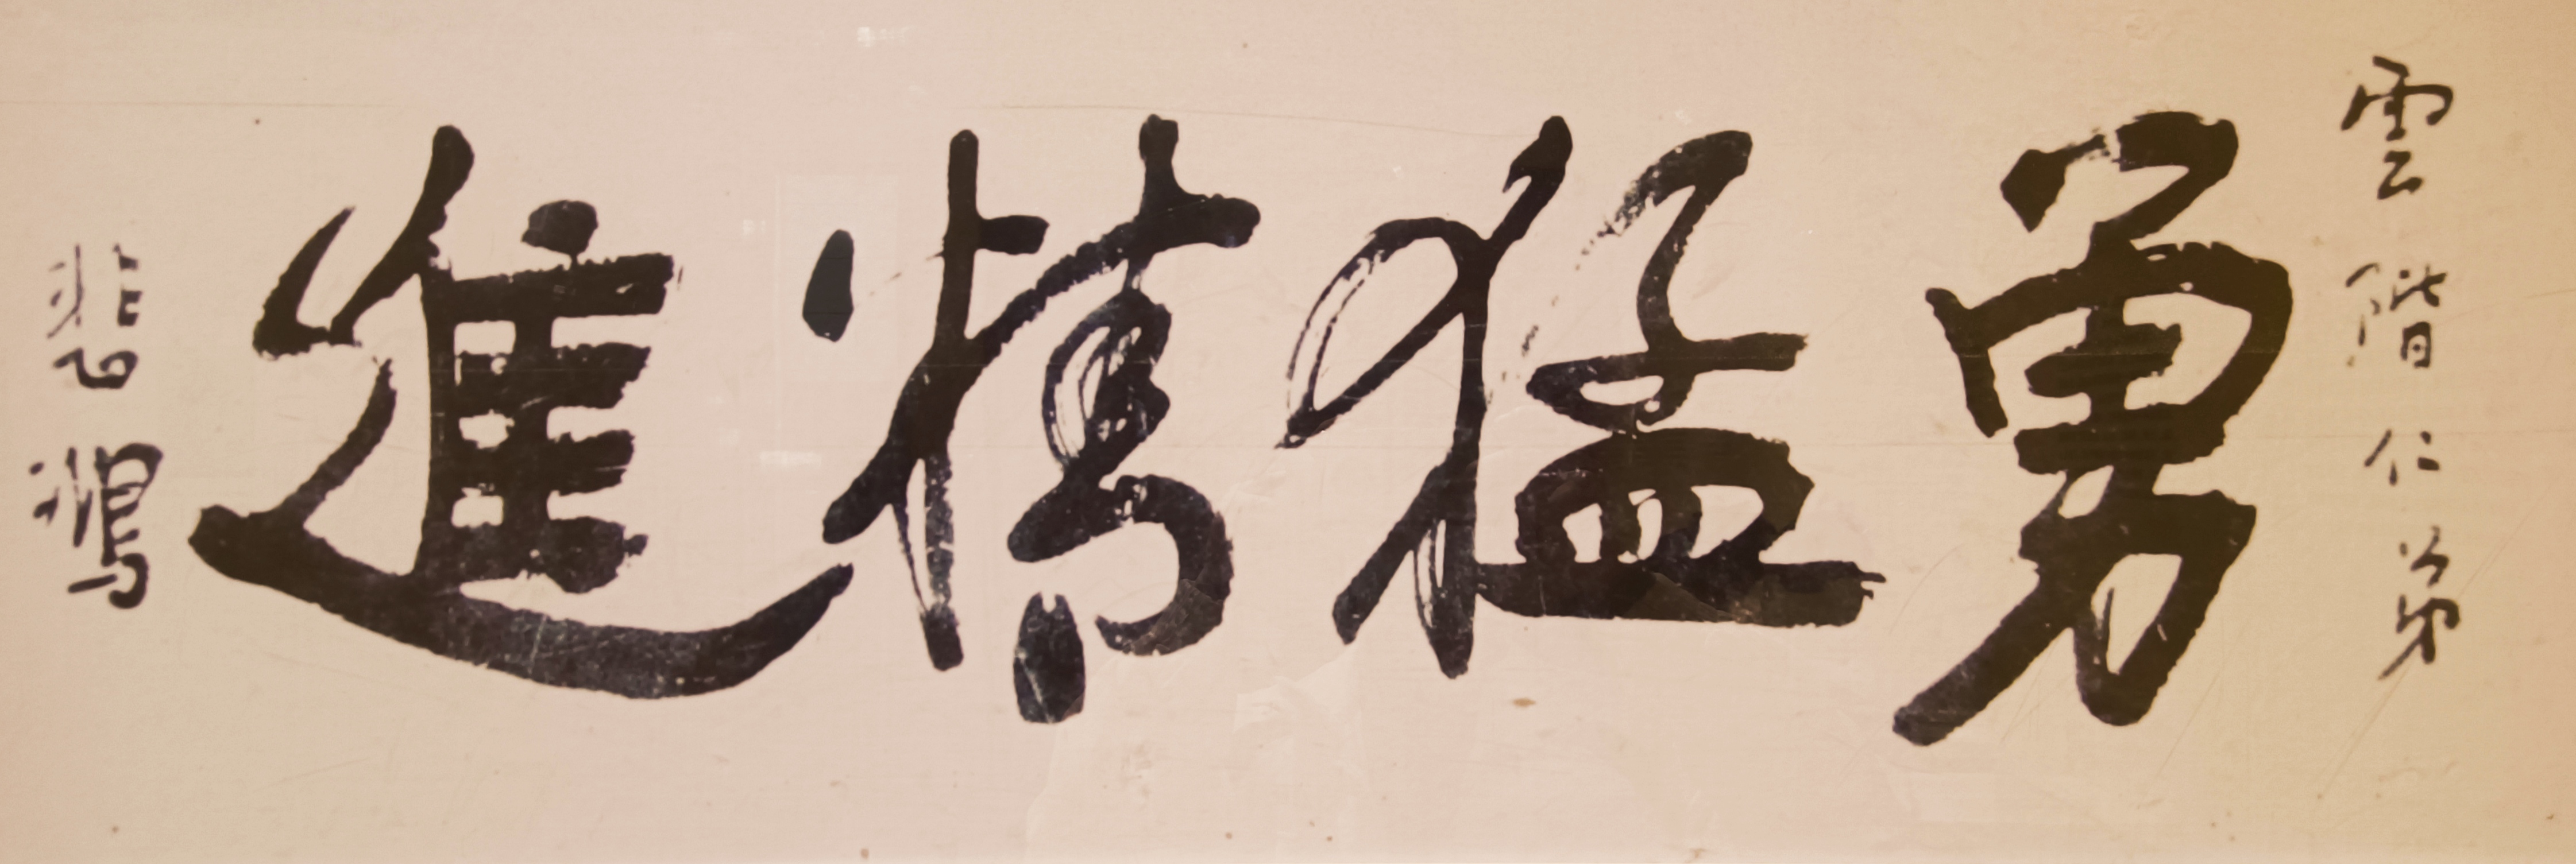 雲階仁弟
勇猛精進
悲鴻